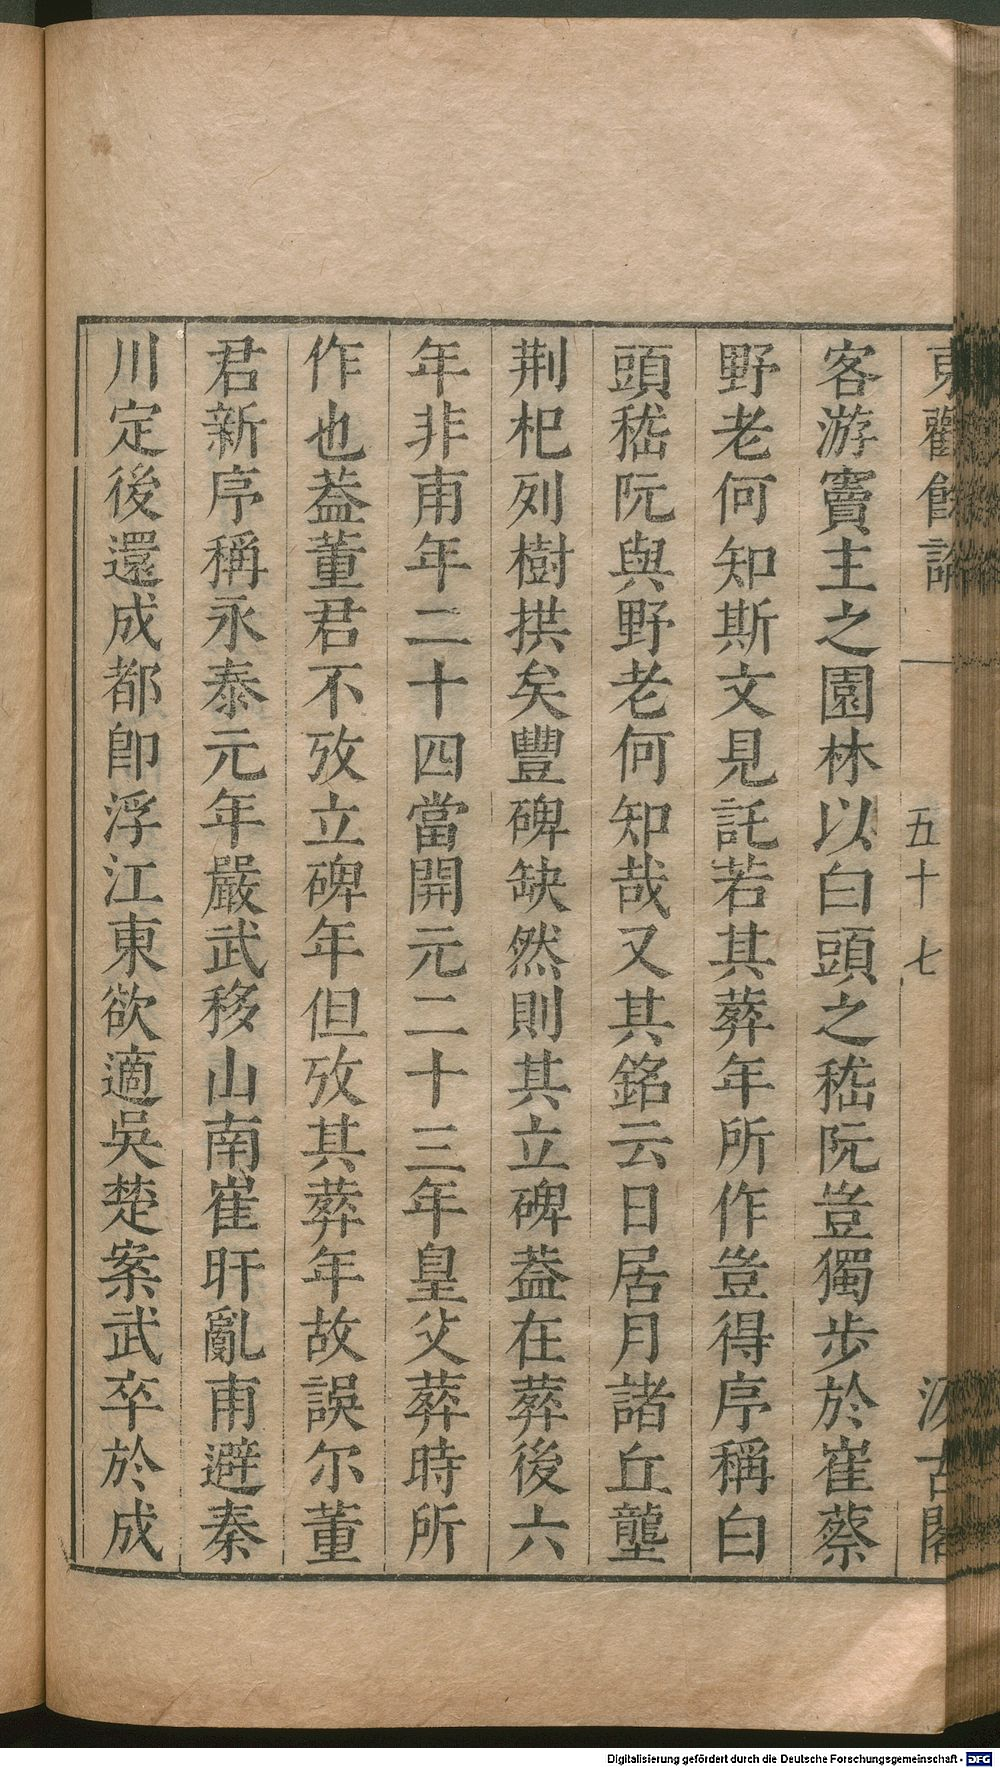 東觀餘論
五十七
汲古閣
客游竇主之園林以白頭之嵇阮豈獨步於崔蔡
野老何知斯文見託若其葬年所作豈得序稱白
頭嵇阮與野老何知哉又其銘云日居月諸丘壟
荆杞列樹拱矣豐碑缺然則其立碑葢在葬後六
年非甫年二十四當開元二十三年皇父葬時所
作也葢董君不攷立碑年但攷其葬年故誤尔董
君新序稱永泰元年嚴武移山南崔旰亂甫避秦
川定後還成都卽浮江東欲適吳楚案武卒於成
Digitalisierung gefördert durch die Deutsche Forschungsgemeinschaft - DFG